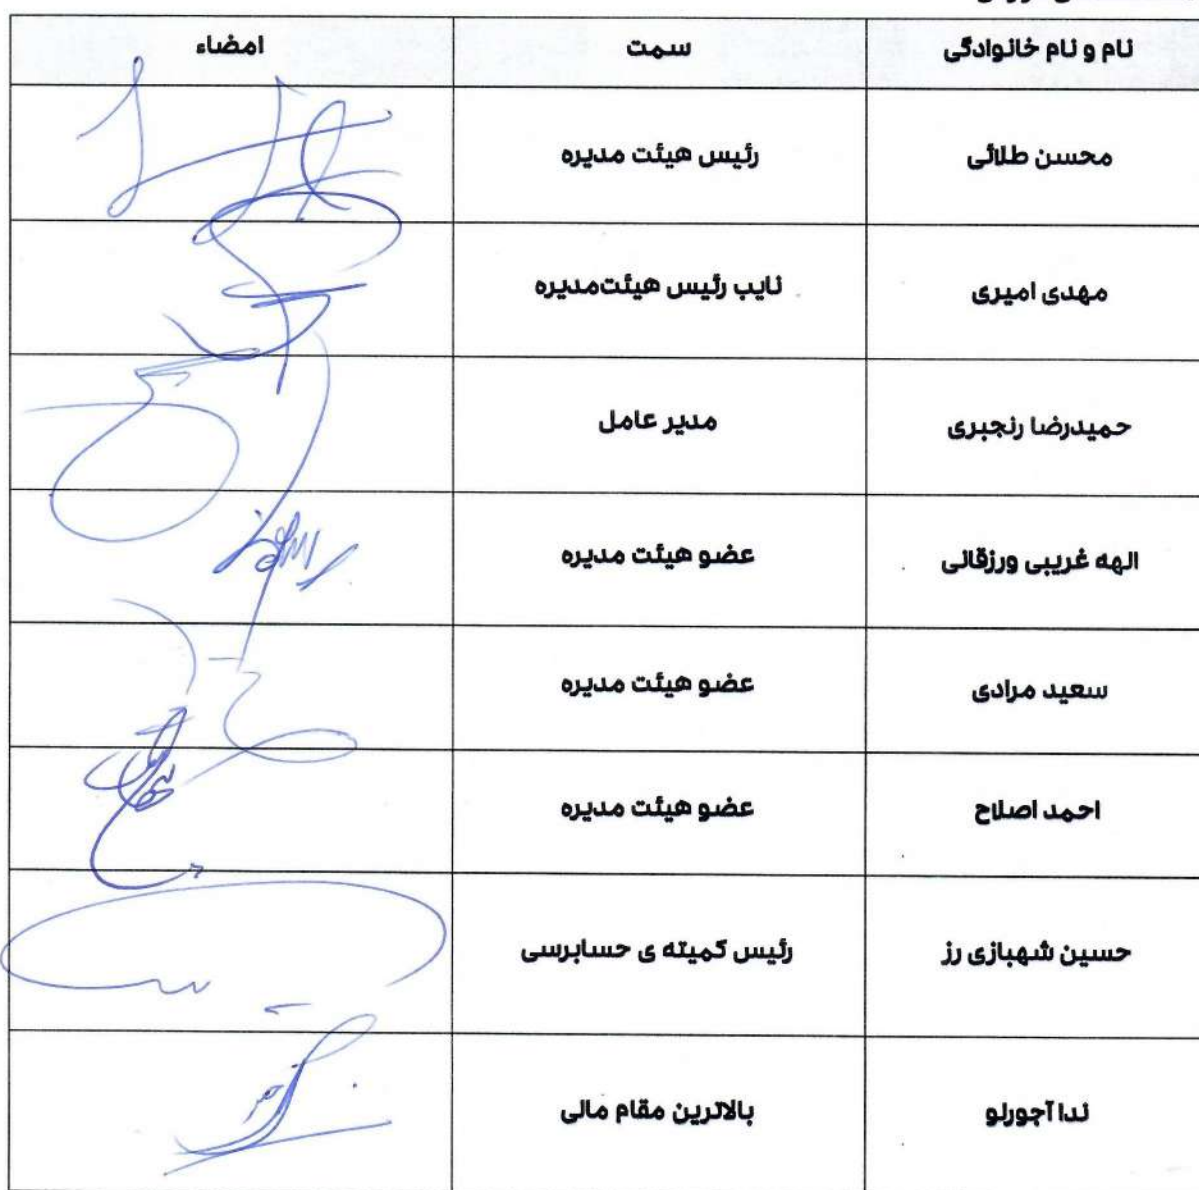 نام و نام خانوادگی سمت امضاء
محسن طلائی رئیس هیئت مدیره
مهدی امیری نایب رئیس هیئت‌مدیره
حمیدرضا رنجبری مدیر عامل
الهه غریبی ورزقانی عضو هیئت مدیره
سعید مرادی عضو هیئت مدیره
احمد اصلاح عضو هیئت مدیره
حسین شهبازی رز رئیس کمیته ی حسابرسی
ندا آجورلو بالاترین مقام مالی